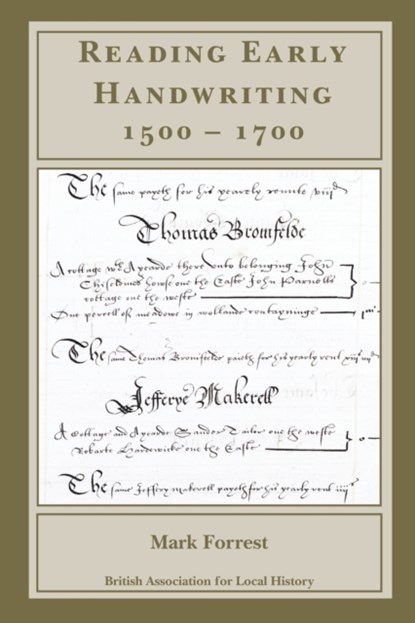 READING EARLY
HANDWRITING
1500 – 1700
The same payeth for his yearely rente viijd
Thomas Bromfelde
A cottage wth A yearde there vnto belonging John
howse one the Easte John Parnolls
cottage one the weste
One percell of meadowe in wollands contayninge
The same Thomas Bromfelde paieth for his yearly rent
Jefferye Makerell
A Cottage and A yearde Sander Tailer one the weste
Robarte Hardewicke one the Easte
The same Jeffery makerell payeth for his yearly rent iiijd
Mark Forrest
British Association for Local History